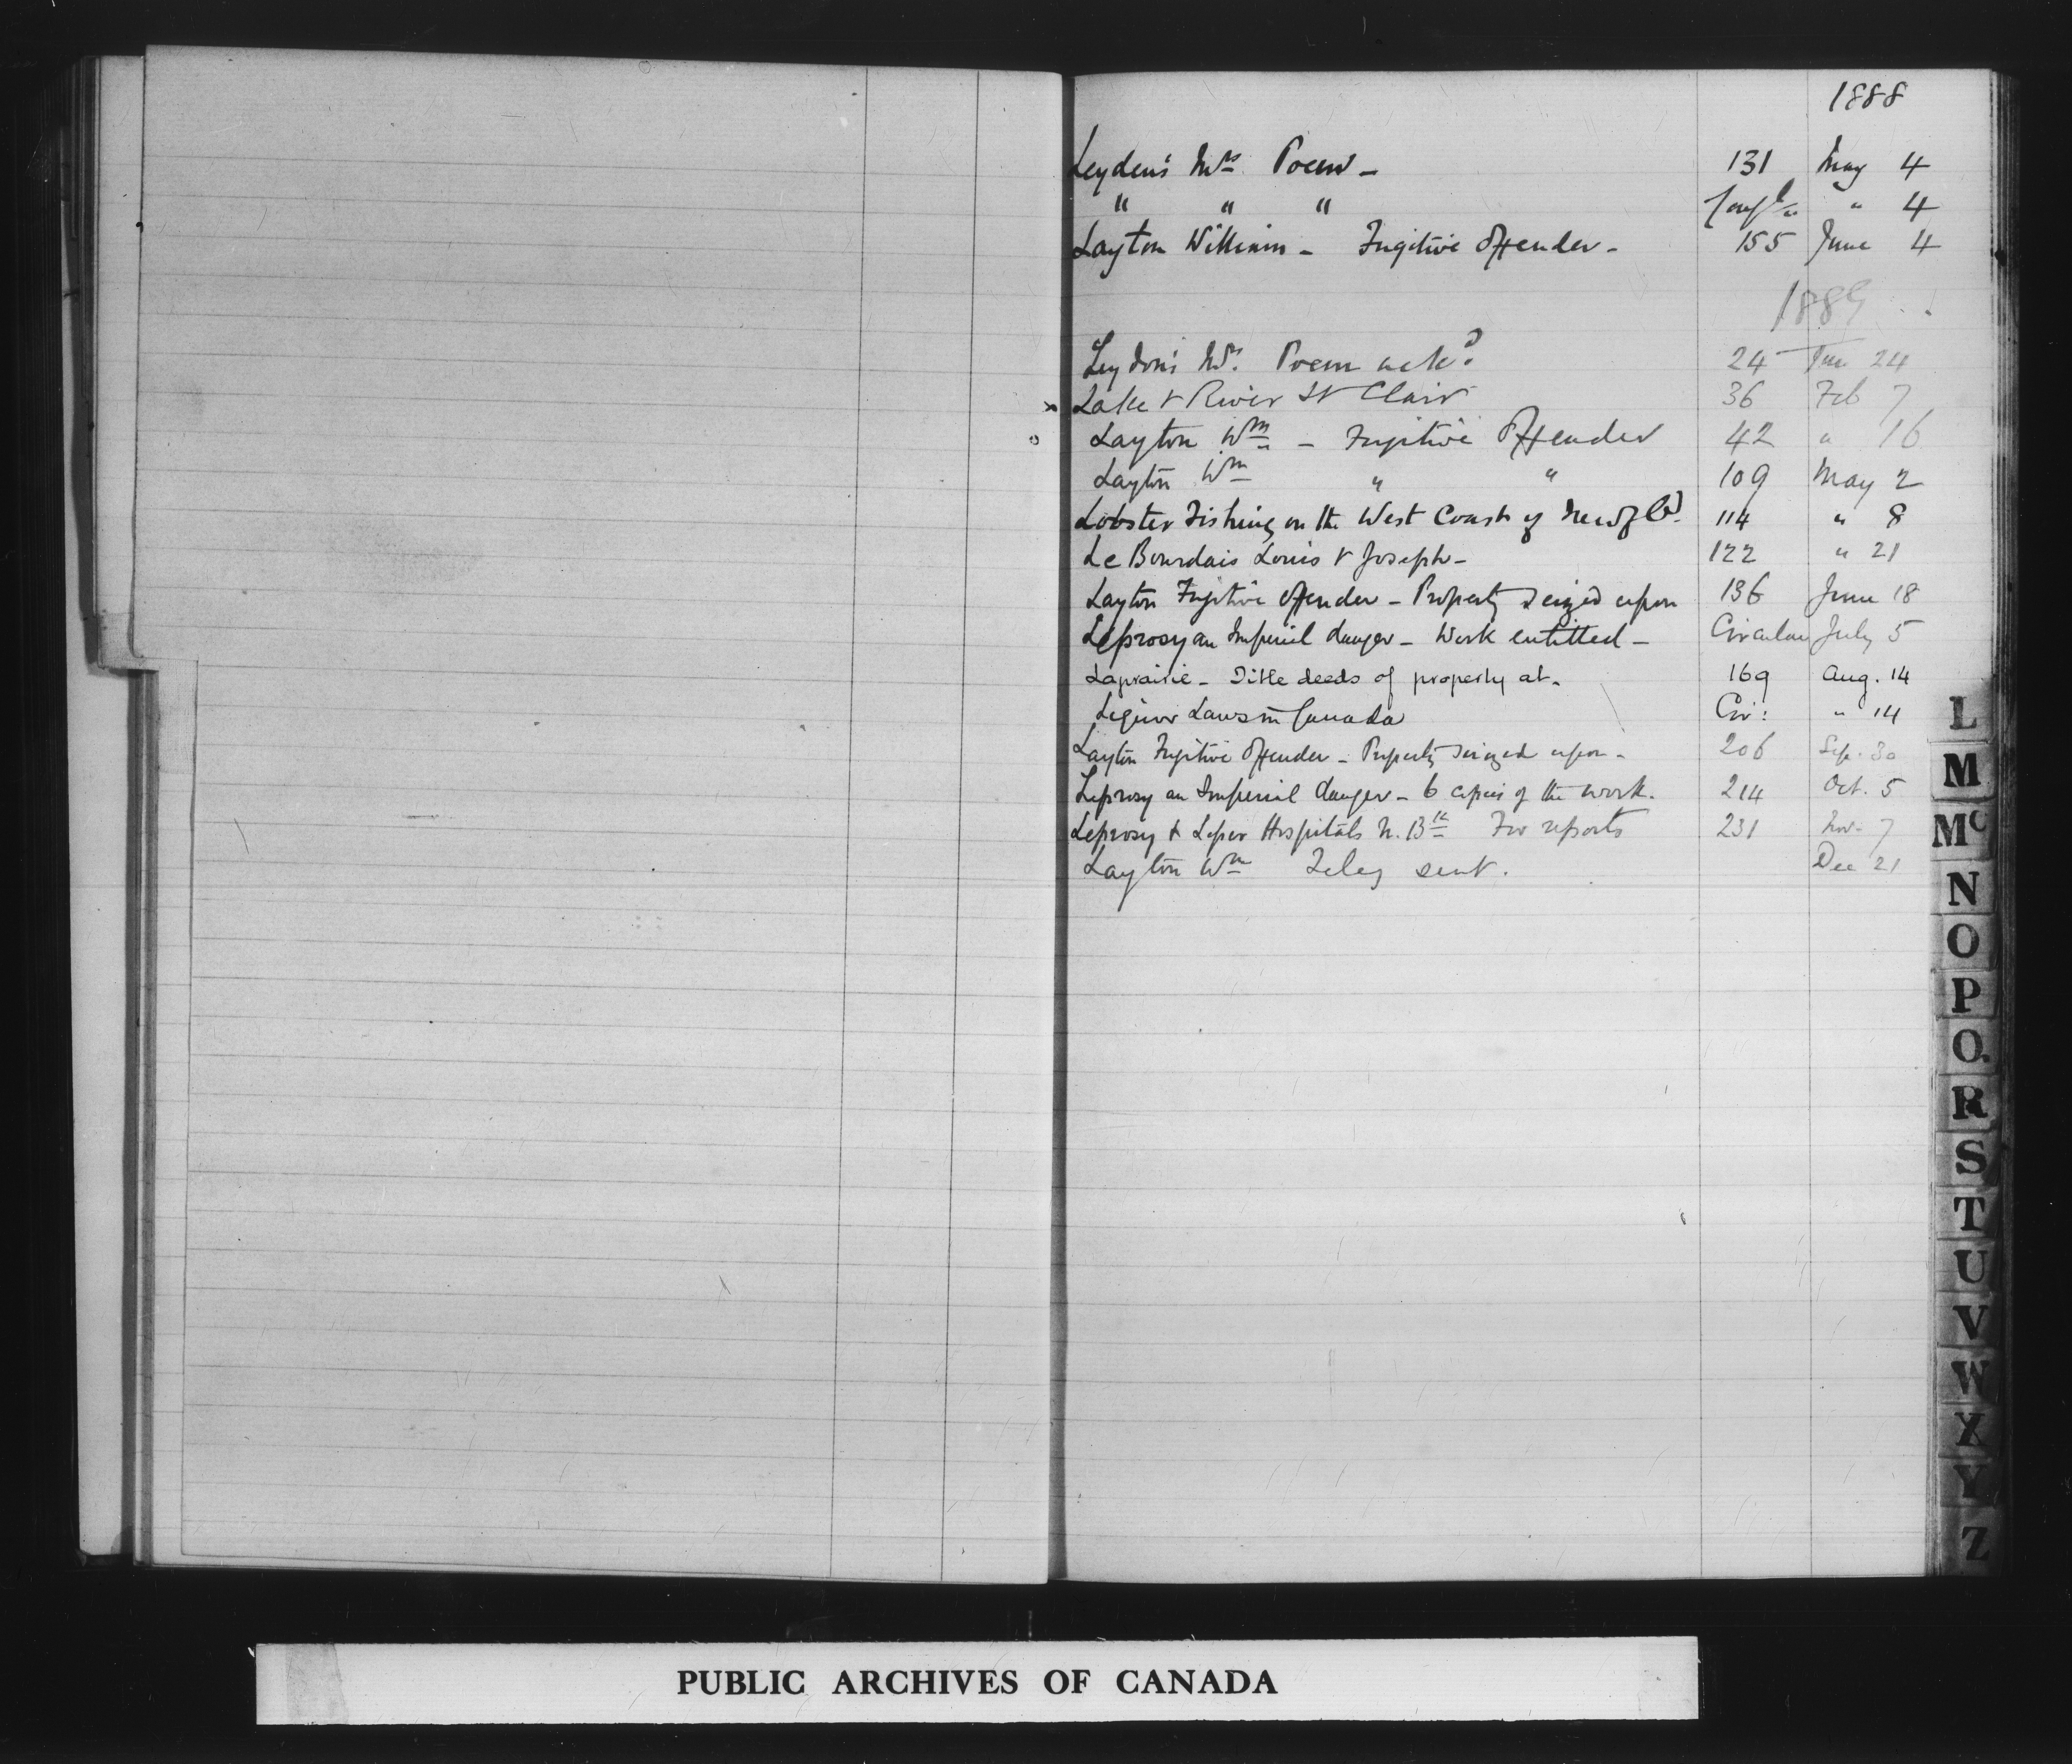 1888
Leyden's Mrs Poem - 131 May 4
" " " " 4
Layton William - Fugitive Offender - 155 June 4
1889
Leydon's Mrs. Poem ackd 24 Jan 24
x Lake & River St Clair 36 Feb 7
o Layton Wm - Fugitive Offender 42 " 16
Layton Wm " " 109 May 2
Lobster Fishing on the West Coast of Newfld. 114 " 8
Le Bourdais Louis & Joseph - 122 " 21
Layton Fugitive Offender - Property seized upon 136 June 18
Leprosy an Imperial danger - Work entitled - Circular July 5
Laprairie - Title deeds of property at - 169 Aug. 14
Liquor Laws in Canada Cir: " 14
Layton Fugitive Offender - Property seized upon - 206 Sep. 30
Leprosy an Imperial danger - 6 copies of the work. 214 Oct. 5
Leprosy & Leper Hospitals N. Bk For reports 231 Nov. 7
Layton Wm Teleg sent. Dec 21
L
M
Mc
N
O
P
Q.
R
S
T
U
V
W
X
Y
Z
PUBLIC ARCHIVES OF CANADA